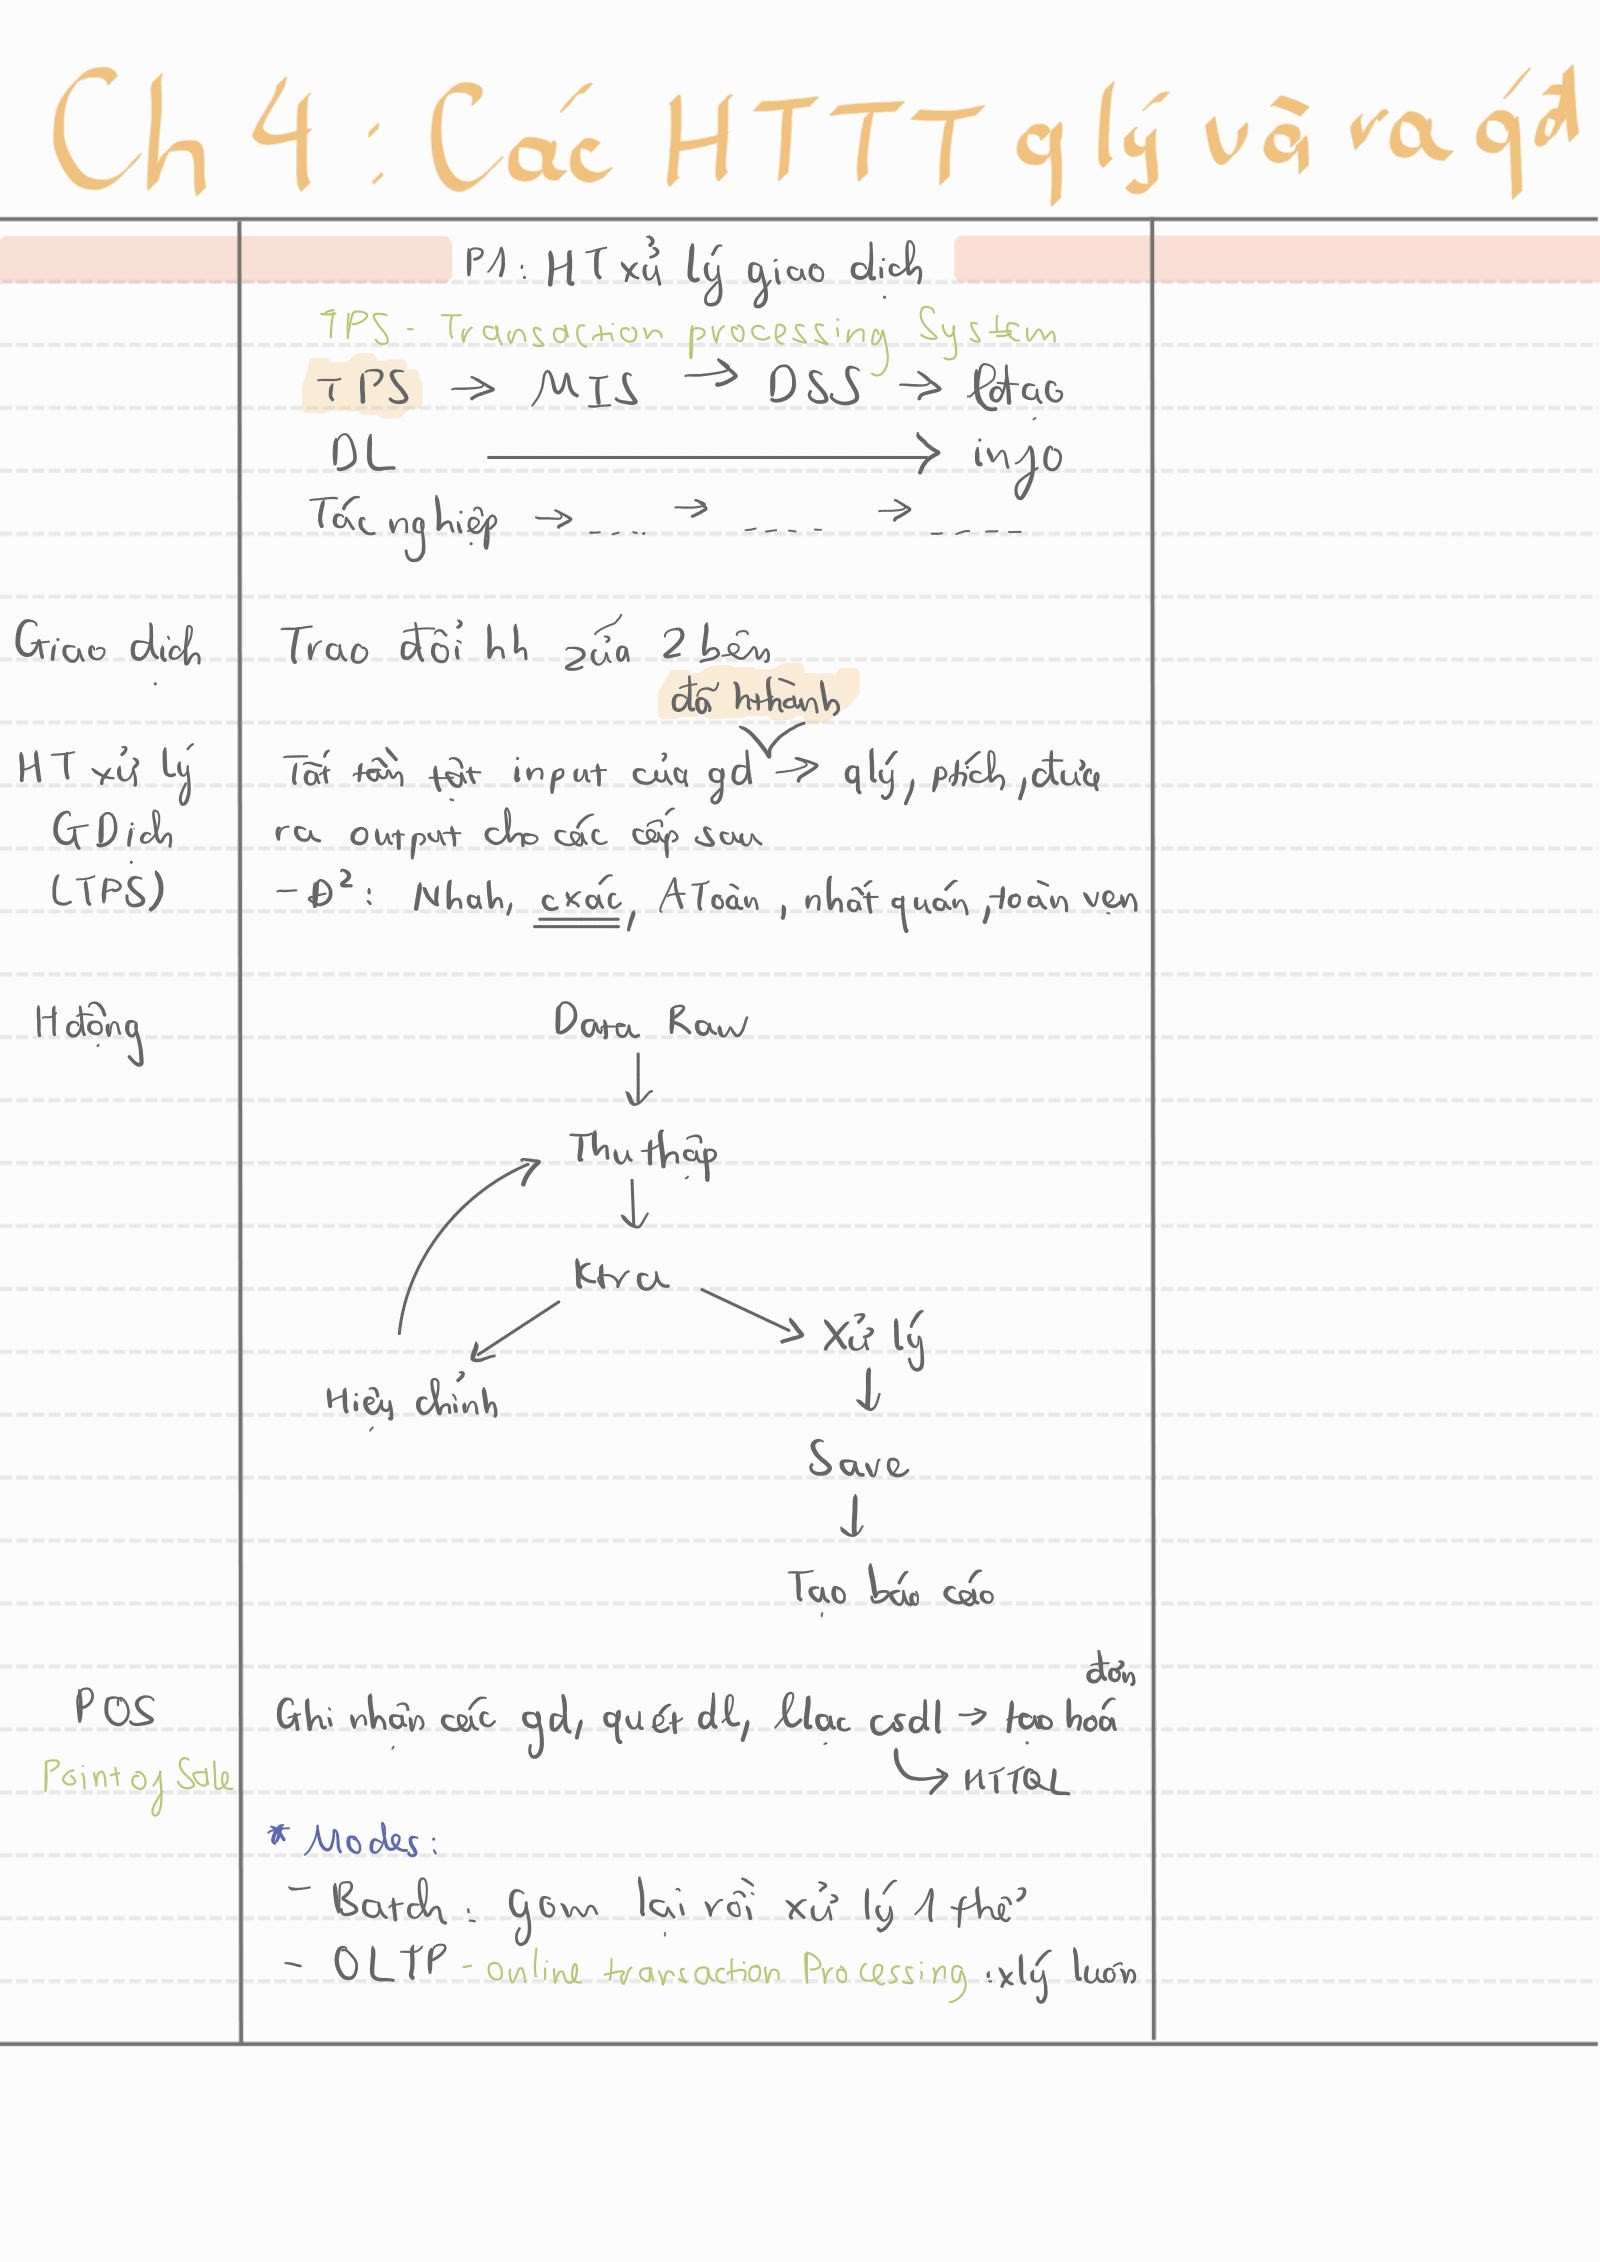 Ch 4 : Các HTTT qlý và ra qđ
P1 : HT xử lý giao dịch
TPS - Transaction processing System
TPS → MIS → DSS →
DL → info
Tác nghiệp → ---- → ---- → ----
Giao dịch
Trao đổi hh của 2 bên
đã hthành
HT xử lý GDịch (TPS)
Tất tần tật input của gd → qlý, ptích, đưa
ra output cho các cấp sau
- Đ²: Nhah, cxác, AToàn, nhất quán, toàn vẹn
Hđộng
Data Raw
↓
Thu thập
↓
Ktra
Xử lý
Hiệu chỉnh
↓
Save
↓
Tạo báo cáo
POS
Point of Sale
đơn
Ghi nhận các gd, quét dl, llạc csdl → tạo hoá
→ HTTQL
* Modes:
- Batch : gom lại rồi xử lý 1 thể
- OLTP - online transaction Processing : xlý luôn